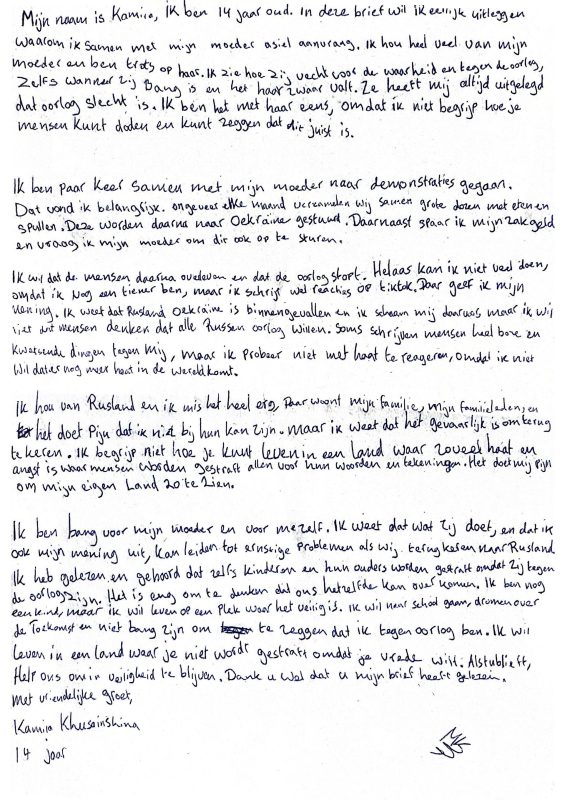 Mijn naam is Kamira, ik ben 14 jaar oud. In deze brief wil ik eerlijk uitleggen
waarom ik samen met mijn moeder asiel aanvraag. Ik hou heel veel van mijn
moeder en ben trots op haar. Ik zie hoe zij vecht voor de waarheid en tegen de oorlog,
zelfs wanneer zij bang is en het haar zwaar valt. Ze heeft mij altijd uitgelegd
dat oorlog slecht is. Ik ben het met haar eens, omdat ik niet begrijp hoe je
mensen kunt doden en kunt zeggen dat dit juist is.
Ik ben paar keer samen met mijn moeder naar demonstraties gegaan.
Dat vond ik belangrijk. ongeveer elke maand verzamelen wij samen grote dozen met eten en
spullen. Deze worden daarna naar Oekraine gestuurd. Daarnaast spaar ik mijn zakgeld
en vraag ik mijn moeder om dit ook op te sturen.
Ik wil dat de mensen daarna overleven en dat de oorlog stopt. Helaas kan ik niet veel doen,
omdat ik nog een tiener ben, maar ik schrijf wel reacties op tiktok. Daar geef ik mijn
mening. Ik weet dat Rusland Oekraine is binnengevallen en ik schaam mij daarvoor maar ik wil
niet dat mensen denken dat alle Russen oorlog willen. Soms schrijven mensen heel boze en
kwetsende dingen tegen mij, maar ik probeer niet met haat te reageren, omdat ik niet
wil dat er nog meer haat in de wereld komt.
Ik hou van Rusland en ik mis het heel erg. Daar woont mijn familie, mijn familieleden, en
het doet pijn dat ik niet bij hun kan zijn. maar ik weet dat het gevaarlijk is om terug
te keren. Ik begrijp niet hoe je kunt leven in een land waar zoveel haat en
angst is waar mensen worden gestraft alleen voor hun woorden en tekeningen. Het doet mij pijn
om mijn eigen Land zo te zien.
Ik ben bang voor mijn moeder en voor mezelf. Ik weet dat wat zij doet, en dat ik
ook mijn mening uit, kan leiden tot ernstige problemen als wij terugkeren naar Rusland
Ik heb gelezen en gehoord dat zelfs kinderen en hun ouders worden gestraft omdat zij tegen
de oorlog zijn. Het is eng om te denken dat ons hetzelfde kan over komen. Ik ben nog
een kind, maar ik wil leven op een plek waar het veilig is. Ik wil naar school gaan, dromen over
de Toekomst en niet bang zijn om te zeggen dat ik tegen oorlog ben. Ik wil
leven in een land waar je niet wordt gestraft omdat je vrede wilt. Alstublieft,
Help ons om in veiligheid te blijven. Dank u wel dat u mijn brief heeft gelezen.
met vriendelijke groet,
Kamira Khusainshina
14 jaar